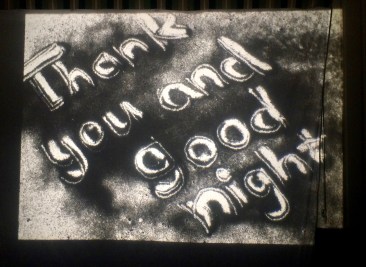 Thank
you and
good
night